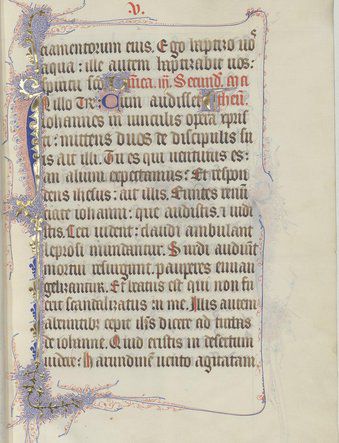 .v.
ciamentorum eius. Ego baptizo uos
aqua: ille autem baptizabit uos:
spiritu sco. Dnica. iij. Secund. ma
In illo Tr: Cum audisset theu.
Iohannes in uinculis opera xpris
ti: mittens duos de discipulis su
is ait illi. Tu es qui uenturus es:
an alium expectamus: Et respon
dens ihesus: ait illis. Euntes renū
ciate iohanni: que audistis. ⁊ uidi
stis. Ceci uident: claudi ambulant
leprosi mundantur. Surdi audiūt
mortui resurgunt. pauperes euuan
gelizantur. Et beatus est qui non fu
erit scandalizatus in me. Illis autem
abeuntibꝫ cepit ihs dicere ad turbas
de iohanne. Quid existis in desertum
uidere: harundinē uento agitatam.